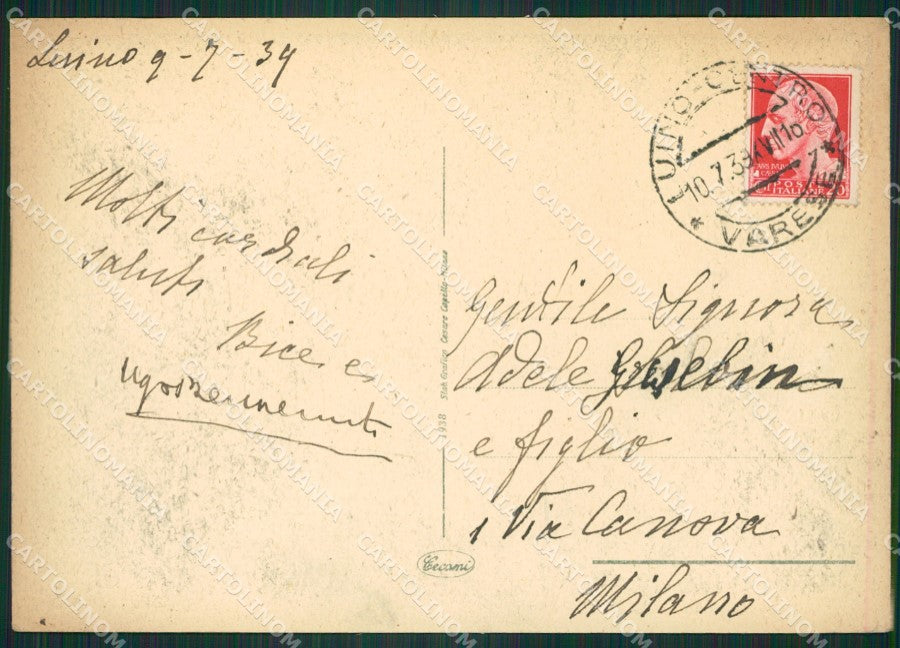 9-7-39
Molti cordiali
saluti
Bice e
LUINO-CENTRO
10.7.39 XVII 16
* VARESE *
POSTE
ITALIANE
Gentile Signora
Adele
e figlio
1 Via Canova
Milano
1938
Stab. Grafico Cesare Capello - Milano
Cecami
CARTOLINOMANIA